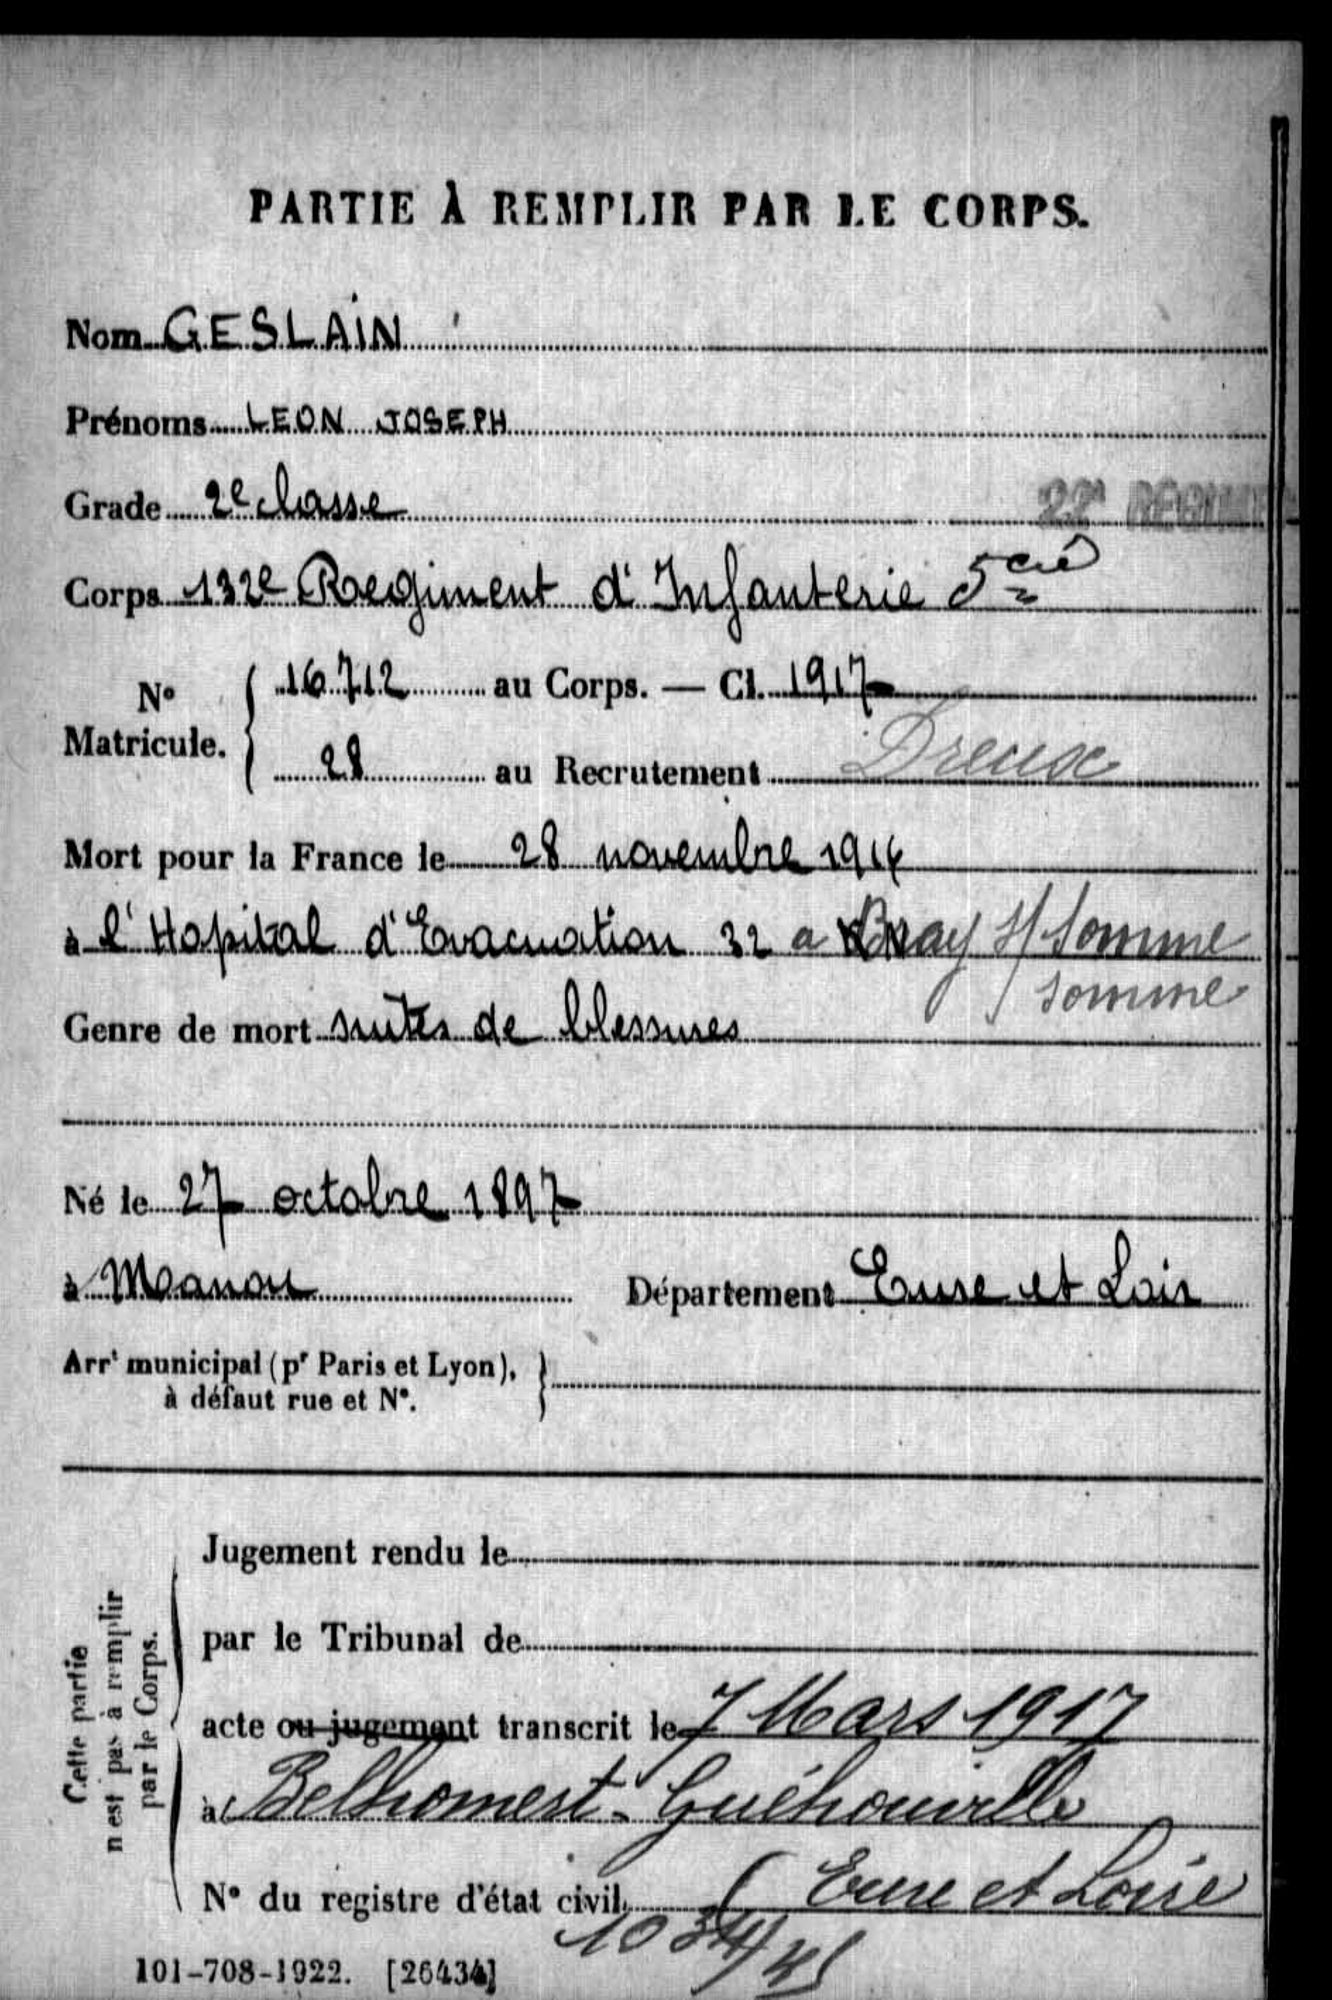 PARTIE À REMPLIR PAR LE CORPS.
Nom GESLAIN
Prénoms LEON JOSEPH
Grade 2e classe
22e REGIME
Corps 132e Regiment d'Infanterie 5 cie
N° Matricule. { 16.712 au Corps. — Cl. 1917
28 au Recrutement Dreux
Mort pour la France le 28 novembre 1916
à l'Hopital d'Evacuation 32 a Bray s/ Somme
Somme
Genre de mort suites de blessures
Né le 27 octobre 1897
à Manou Département Eure et Loir
Arrt municipal (pr Paris et Lyon),
à défaut rue et N°.
Cette partie
n'est pas à remplir
par le Corps.
Jugement rendu le
par le Tribunal de
acte ou jugement transcrit le 7 Mars 1917
à Belhomert-Guéhouville
N° du registre d'état civil (Eure et Loire
1034/
101-708-1922. [26434]